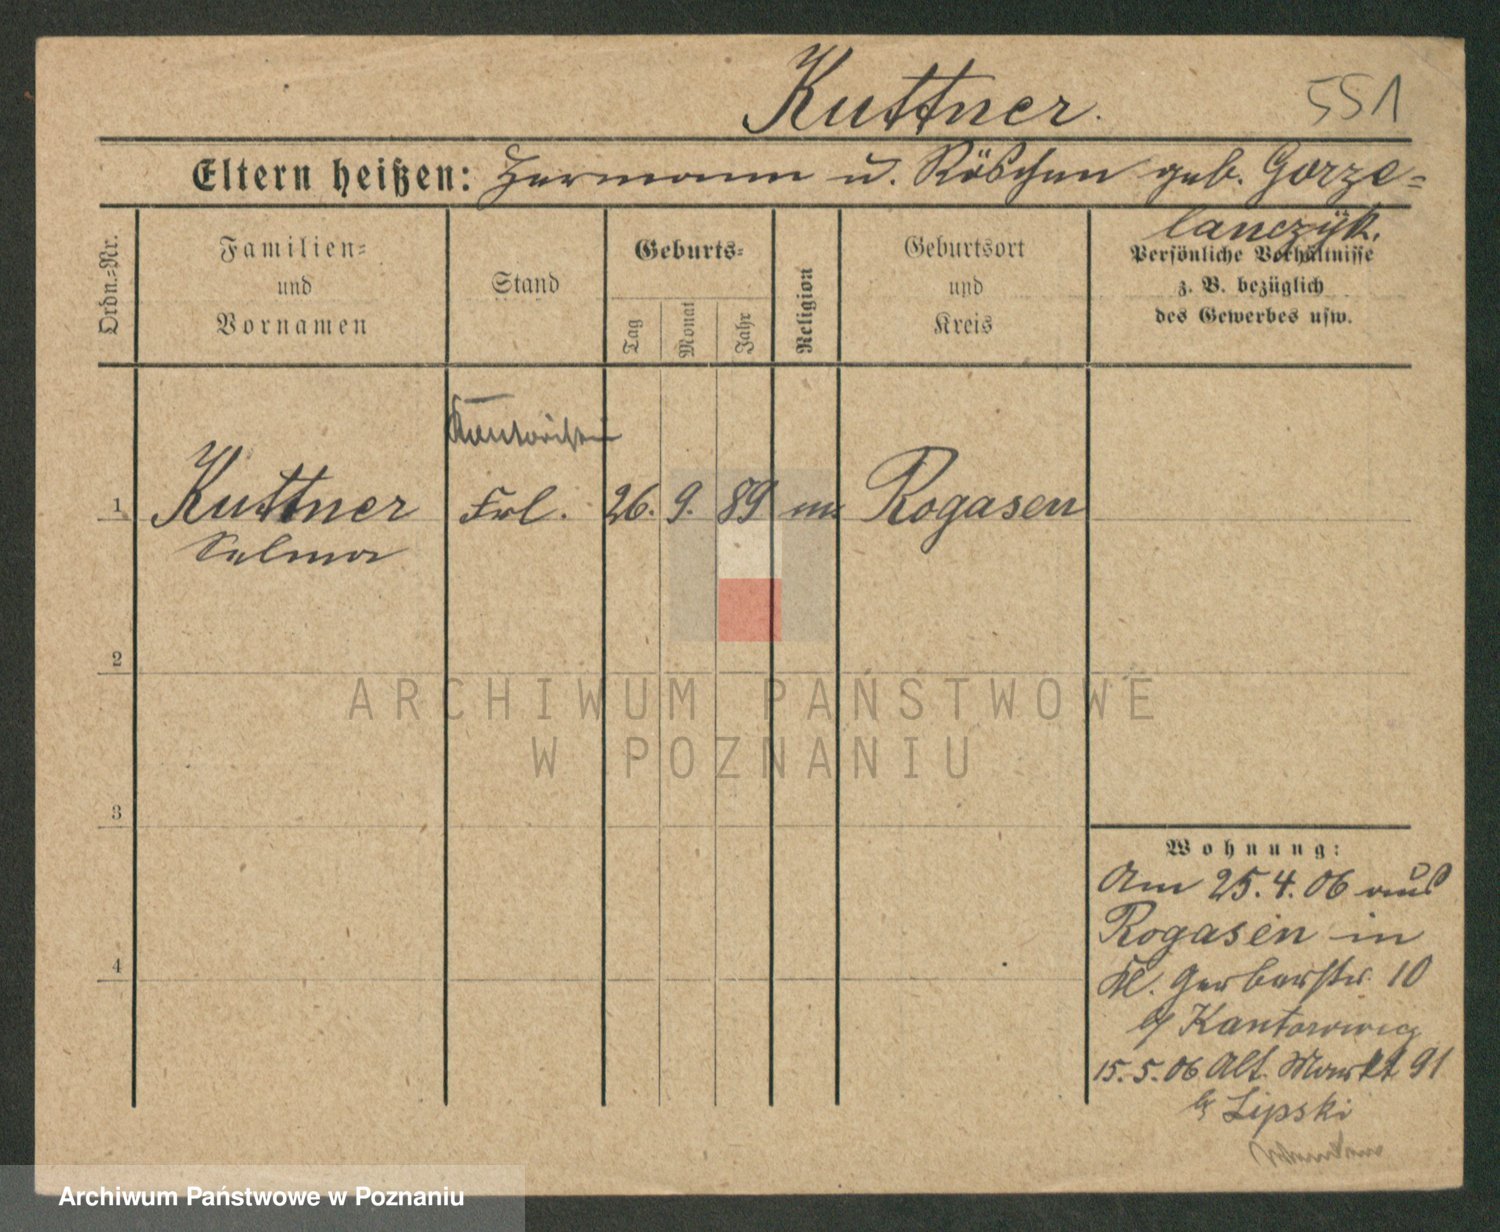 Kuttner.
551
Eltern heißen: Hermann u. Röschen geb. Gorze-
lanczyk.
Ordn.-Nr.
Familien-
und
Vornamen
Stand
Geburts-
Tag
Monat
Jahr
Religion
Geburtsort
und
Kreis
Persönliche Verhältnisse
z. B. bezüglich
des Gewerbes usw.
Kontoristin
1 Kuttner Frl. 26. 9. 89 Rogasen
Selma
2
3
4
Wohnung:
Am 25.4.06 aus
Rogasen in
Kl. Gerberstr. 10
b/ Kantorowicz
15.5.06 Alt. Markt 91
b/ Lipski
ARCHIWUM PAŃSTWOWE
W POZNANIU
Archiwum Państwowe w Poznaniu